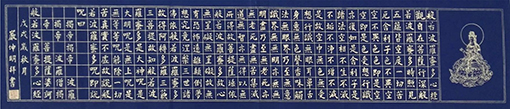 般若波羅蜜多心經
觀自在菩薩行深般
若波羅蜜多時照見
五蘊皆空度一切苦
厄舍利子色不異空
空不異色色即是空
空即是色受想行識
亦復如是舍利子是
諸法空相不生不滅
不垢不淨不增不減
是故空中無色無受
想行識無眼耳鼻舌
身意無色聲香味觸
法無眼界乃至無意
識界無無明亦無無
明盡乃至無老死亦
無老死盡無苦集滅
道無智亦無得以無
所得故菩提薩埵依
般若波羅蜜多故心
無罣礙無罣礙故無
有恐怖遠離顛倒夢
想究竟涅槃三世諸
佛依般若波羅蜜多
故得阿耨多羅三藐
三菩提故知般若波
羅蜜多是大神呪是
大明呪是無上呪是
無等等呪能除一切
苦真實不虛故說般
若波羅蜜多呪即說
呪曰
揭諦揭諦
波羅揭諦
波羅僧揭諦
菩提薩婆訶
般若波羅蜜多心經
戊戌歲秋月
嚴仲明拜書